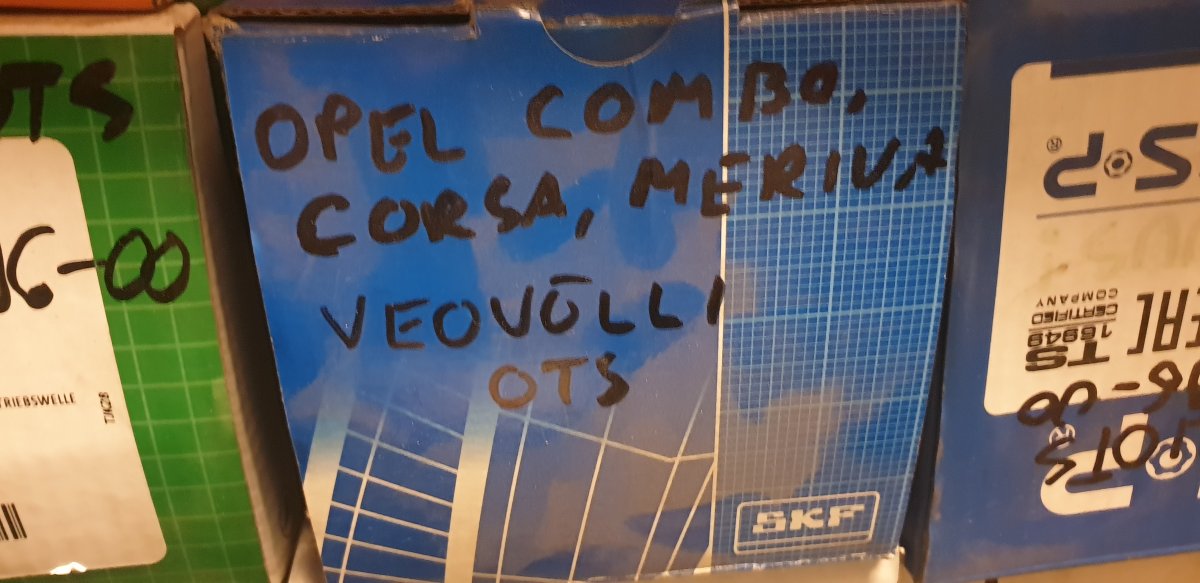 OPEL COMBO,
CORSA, MERIVA
VEOVÕLLI
OTS
SKF
OTS
96-00
TRIEBSWELLE
S.P
®
EAC
COMPANY
CERTIFIED
16949
TS
96-00
OTS